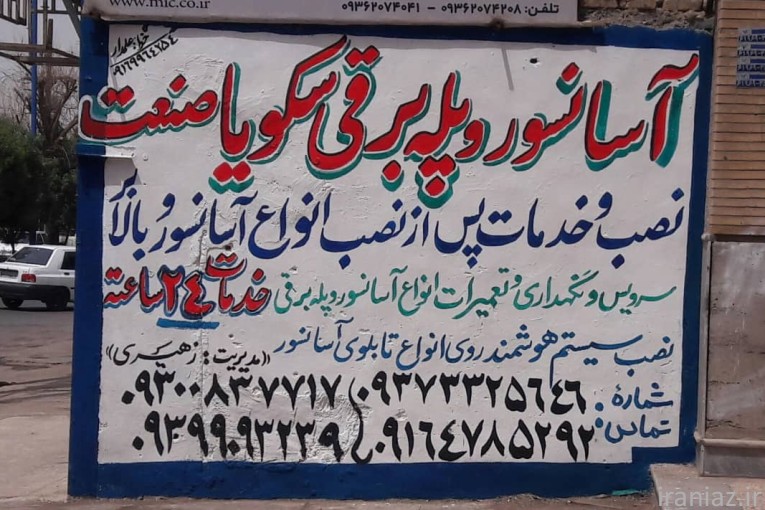 www.mic.co.ir
تلفن: ۰۹۳۶۲۰۷۴۲۰۸ - ۰۹۳۶۲۰۷۴۰۴۱
خط: علمدار
۰۹۱۶۹۹۲۴۷۵۴
آسانسور و پله برقی سکو یا صنعت
نصب و خدمات پس از نصب انواع آسانسور و بالابر
سرویس و نگهداری و تعمیرات انواع آسانسور و پله برقی خدمات ۲۴ ساعته
نصب سیستم هوشمند روی انواع تابلوی آسانسور
«مدیریت: زهیری»
شمارۀ تماس:
۰۹۳۷۳۳۲۵۶۴۶ ۰۹۳۰۰۸۳۷۷۱۷
۰۹۱۶۴۷۸۵۲۹۲ ۰۹۳۹۹۰۹۳۲۳۹
iraniaz.ir